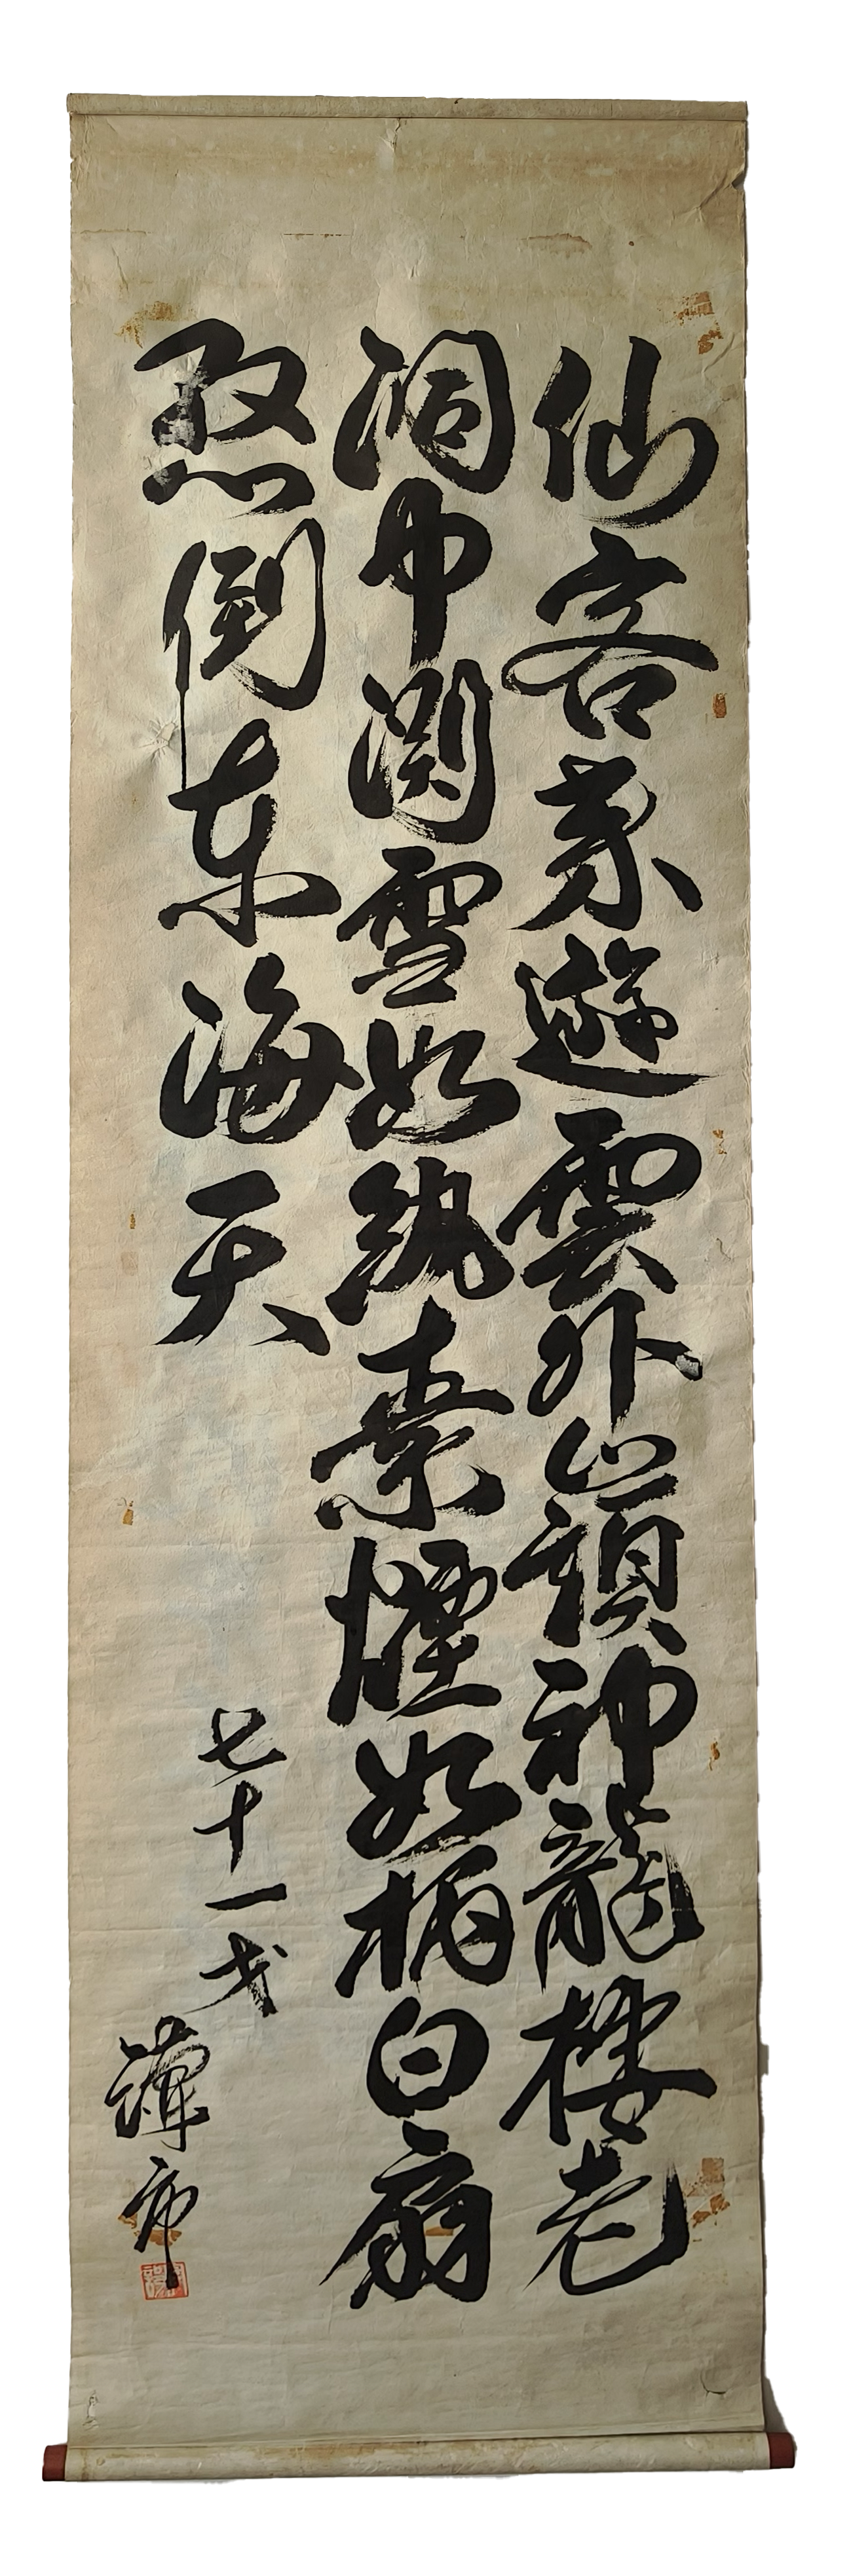 仙客来遊雲外巓神龍棲老
洞中渕雪如紈素煙如柄白扇
懸倒東海天
七十一才